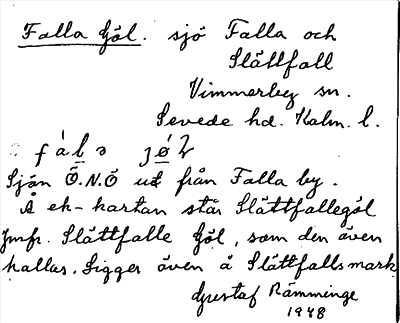 Falla Göl. sjö Falla och
Slättfall
Vimmerby sn.
Sevede hd. Kalm. l.
fála jǿl
Sjön Ö.N.Ö ut från Falla by.
Å ek-kartan står Slättfallegöl
Jmfr. Slättfalle Göl, som den även
kallas. Ligger även å Slättfallsmark
Gustaf Rämminge
1948